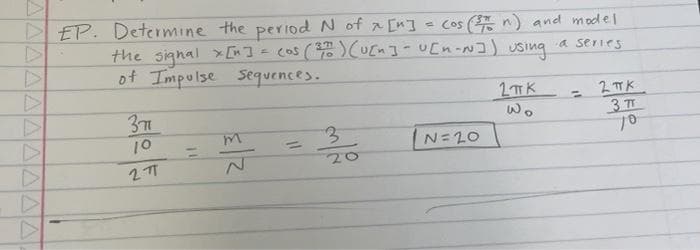 EP. Determine the period N of x[n] = cos(3π/10 n) and model
the signal x[n] = cos(3π/10)(u[n] - u[n-N]) using a series
of Impulse Sequences.
2πK/ω₀ = 2πK/(3π/10)
(3π/10)/2π = m/N = 3/20
N=20